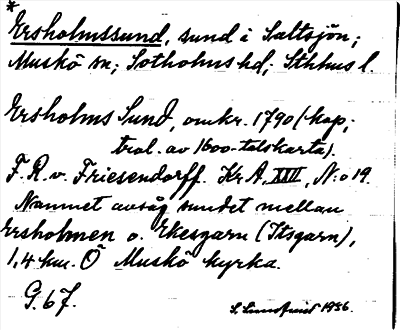 *
Ersholmssund, sund i Saltsjön;
Muskö sn; Sotholms hd; Sthlms l.
Ersholms Sund, omkr. 1790 (kop;
trol. av 1600-talskarta).
F. R. v. Friesendorff. Kr A, XXIII, N:o 19.
Namnet avsåg sundet mellan
Ersholmen o. Ekesgarn (Itsgarn),
1,4 km. Ö Muskö kyrka.
G. 67.
S. 1936.